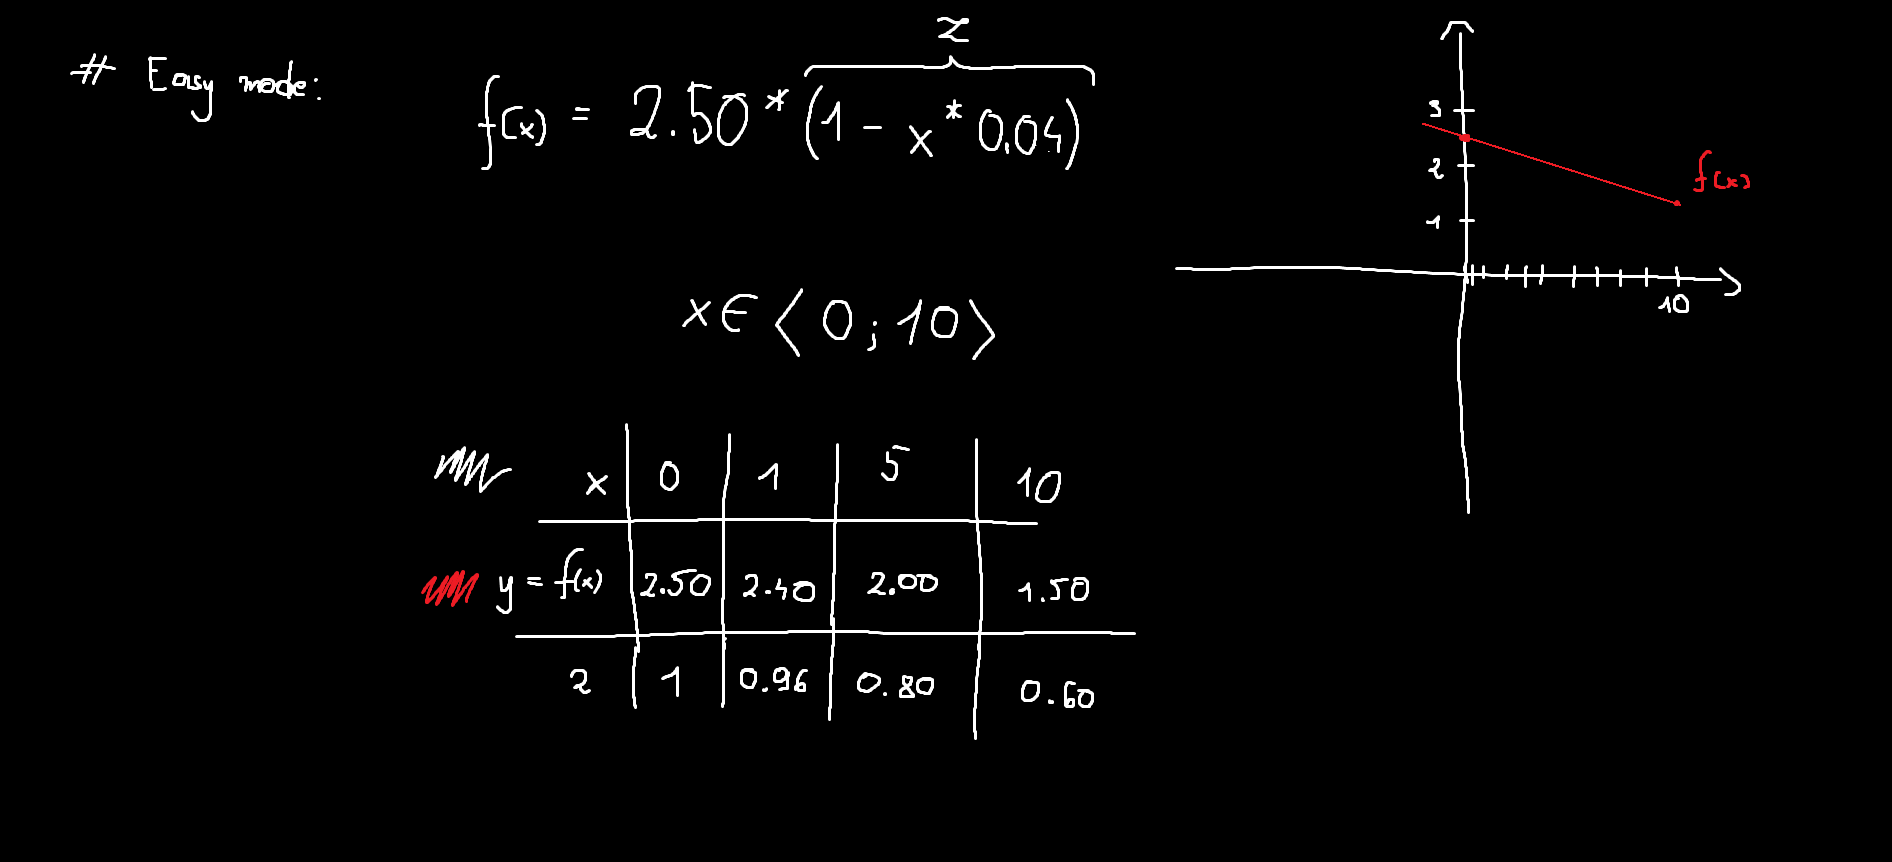 # Easy mode:
z
f(x) = 2.50 * (1 - x * 0.04)
x ∈ ⟨0 ; 10⟩
x 0 1 5 10
y = f(x) 2.50 2.40 2.00 1.50
2 1 0.96 0.80 0.60
3
2
1
10
f(x)